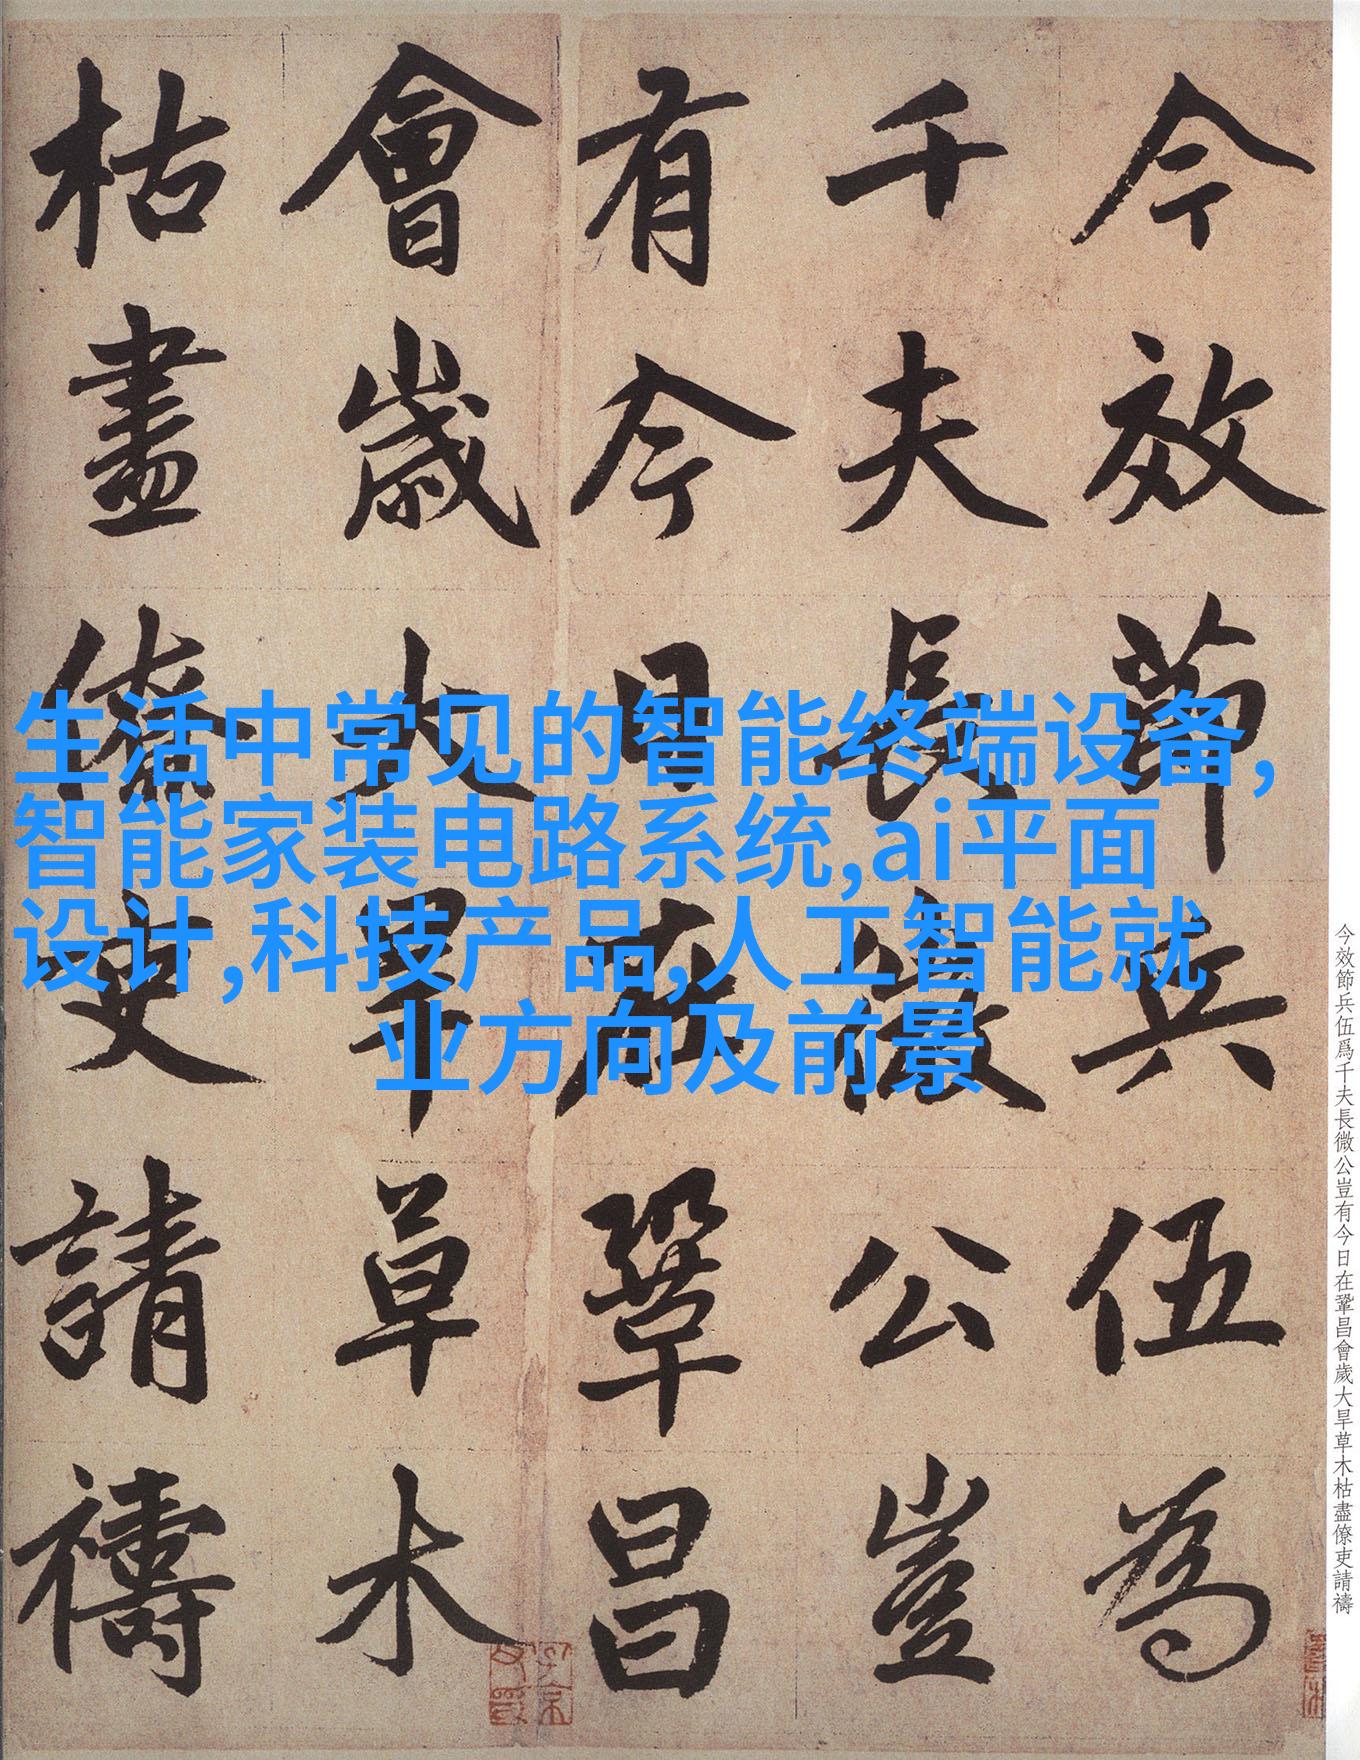 今效節兵伍為
千夫長微公豈
有今日在鞏昌
會歲大旱草木
枯盡僚吏請禱
生活中常见的智能终端设备,
智能家装电路系统,ai平面
设计,科技产品,人工智能就
业方向及前景
今效節兵伍爲千夫長微公豈有今日在鞏昌會歲大旱草木枯盡僚吏請禱